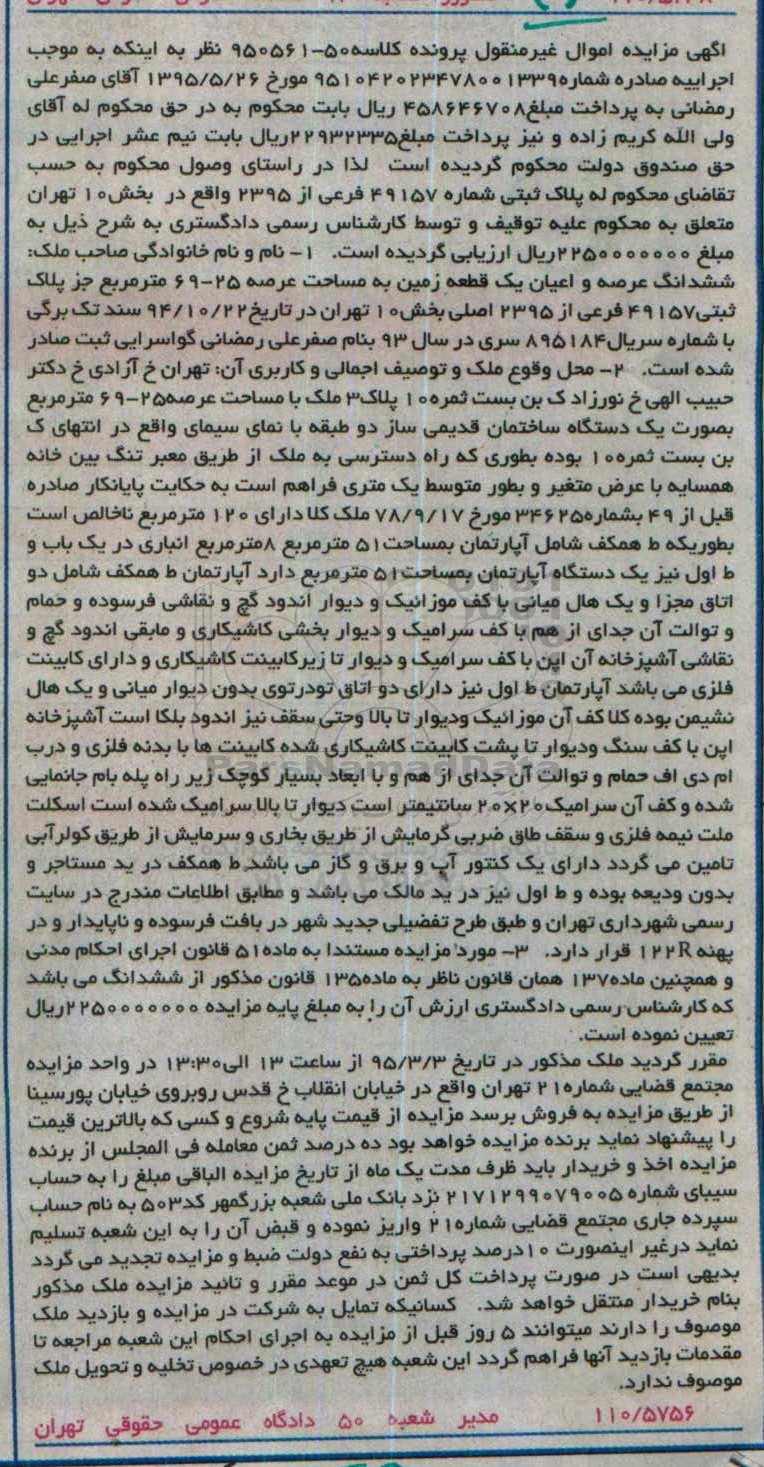 آگهی مزایده اموال غیرمنقول پرونده کلاسه۵۰-۹۵۰۵۶۱ نظر به اینکه به موجب
اجراییه صادره شماره۹۵۱۰۴۲۰۲۳۴۷۸۰۰۱۳۳۹ مورخ ۱۳۹۵/۵/۲۶ آقای صفرعلی
رمضانی به پرداخت مبلغ۴۵۸۶۴۶۷۰۸ ریال بابت محکوم به در حق محکوم له آقای
ولی الله کریم زاده و نیز پرداخت مبلغ۲۲۹۳۲۳۳۵ریال بابت نیم عشر اجرایی در
حق صندوق دولت محکوم گردیده است لذا در راستای وصول محکوم به حسب
تقاضای محکوم له پلاک ثبتی شماره ۴۹۱۵۷ فرعی از ۲۳۹۵ واقع در بخش۱۰ تهران
متعلق به محکوم علیه توقیف و توسط کارشناس رسمی دادگستری به شرح ذیل به
مبلغ ۲۲۵۰۰۰۰۰۰۰ریال ارزیابی گردیده است. ۱- نام و نام خانوادگی صاحب ملک:
ششدانگ عرصه و اعیان یک قطعه زمین به مساحت عرصه ۲۵-۶۹ مترمربع جز پلاک
ثبتی۴۹۱۵۷ فرعی از ۲۳۹۵ اصلی بخش۱۰ تهران در تاریخ۹۴/۱۰/۲۲ سند تک برگی
با شماره سریال۸۹۵۱۸۴ سری در سال ۹۳ بنام صفرعلی رمضانی گواسرایی ثبت صادر
شده است. ۲- محل وقوع ملک و توصیف اجمالی و کاربری آن: تهران خ آزادی خ دکتر
حبیب الهی خ نورزاد ک بن بست ثمره۱۰ پلاک۳ ملک با مساحت عرصه۲۵-۶۹ مترمربع
بصورت یک دستگاه ساختمان قدیمی ساز دو طبقه با نمای سیمای واقع در انتهای ک
بن بست ثمره۱۰ بوده بطوری که راه دسترسی به ملک از طریق معبر تنگ بین خانه
همسایه با عرض متغیر و بطور متوسط یک متری فراهم است به حکایت پایانکار صادره
قبل از ۴۹ بشماره۳۴۶۲۵ مورخ ۷۸/۹/۱۷ ملک کلا دارای ۱۲۰ مترمربع ناخالص است
بطوریکه ط همکف شامل آپارتمان بمساحت۵۱ مترمربع ۸مترمربع انباری در یک باب و
ط اول نیز یک دستگاه آپارتمان بمساحت۵۱ مترمربع دارد آپارتمان ط همکف شامل دو
اتاق مجزا و یک هال میانی با کف موزائیک و دیوار اندود گچ و نقاشی فرسوده و حمام
و توالت آن جدای از هم با کف سرامیک و دیوار بخشی کاشیکاری و مابقی اندود گچ و
نقاشی آشپزخانه آن اپن با کف سرامیک و دیوار تا زیرکابینت کاشیکاری و دارای کابینت
فلزی می باشد آپارتمان ط اول نیز دارای دو اتاق تودرتوی بدون دیوار میانی و یک هال
نشیمن بوده کلا کف آن موزائیک ودیوار تا بالا وحتی سقف نیز اندود بلکا است آشپزخانه
اپن با کف سنگ ودیوار تا پشت کابینت کاشیکاری شده کابینت ها با بدنه فلزی و درب
ام دی اف حمام و توالت آن جدای از هم و با ابعاد بسیار کوچک زیر راه پله بام جانمایی
شده و کف آن سرامیک۲۰×۲۰ سانتیمتر است دیوار تا بالا سرامیک شده است اسکلت
ملت نیمه فلزی و سقف طاق ضربی گرمایش از طریق بخاری و سرمایش از طریق کولرآبی
تامین می گردد دارای یک کنتور آب و برق و گاز می باشد ط همکف در ید مستاجر و
بدون ودیعه بوده و ط اول نیز در ید مالک می باشد و مطابق اطلاعات مندرج در سایت
رسمی شهرداری تهران و طبق طرح تفضیلی جدید شهر در بافت فرسوده و ناپایدار و در
پهنه R۱۲۲ قرار دارد. ۳- مورد مزایده مستندا به ماده۵۱ قانون اجرای احکام مدنی
و همچنین ماده۱۳۷ همان قانون ناظر به ماده۱۳۵ قانون مذکور از ششدانگ می باشد
که کارشناس رسمی دادگستری ارزش آن را به مبلغ پایه مزایده ۲۲۵۰۰۰۰۰۰۰ریال
تعیین نموده است.
مقرر گردید ملک مذکور در تاریخ ۹۵/۳/۳ از ساعت ۱۳ الی۱۳:۳۰ در واحد مزایده
مجتمع قضایی شماره۲۱ تهران واقع در خیابان انقلاب خ قدس روبروی خیابان پورسینا
از طریق مزایده به فروش برسد مزایده از قیمت پایه شروع و کسی که بالاترین قیمت
را پیشنهاد نماید برنده مزایده خواهد بود ده درصد ثمن معامله فی المجلس از برنده
مزایده اخذ و خریدار باید ظرف مدت یک ماه از تاریخ مزایده الباقی مبلغ را به حساب
سیبای شماره ۲۱۷۱۲۹۹۰۷۹۰۰۵ نزد بانک ملی شعبه بزرگمهر کد۵۰۳ به نام حساب
سپرده جاری مجتمع قضایی شماره۲۱ واریز نموده و قبض آن را به این شعبه تسلیم
نماید درغیر اینصورت ۱۰درصد پرداختی به نفع دولت ضبط و مزایده تجدید می گردد
بدیهی است در صورت پرداخت کل ثمن در موعد مقرر و تائید مزایده ملک مذکور
بنام خریدار منتقل خواهد شد. کسانیکه تمایل به شرکت در مزایده و بازدید ملک
موصوف را دارند میتوانند ۵ روز قبل از مزایده به اجرای احکام این شعبه مراجعه تا
مقدمات بازدید آنها فراهم گردد این شعبه هیچ تعهدی در خصوص تخلیه و تحویل ملک
موصوف ندارد.
۱۱۰/۵۷۵۶ مدیر شعبه ۵۰ دادگاه عمومی حقوقی تهران
ParsNamadData